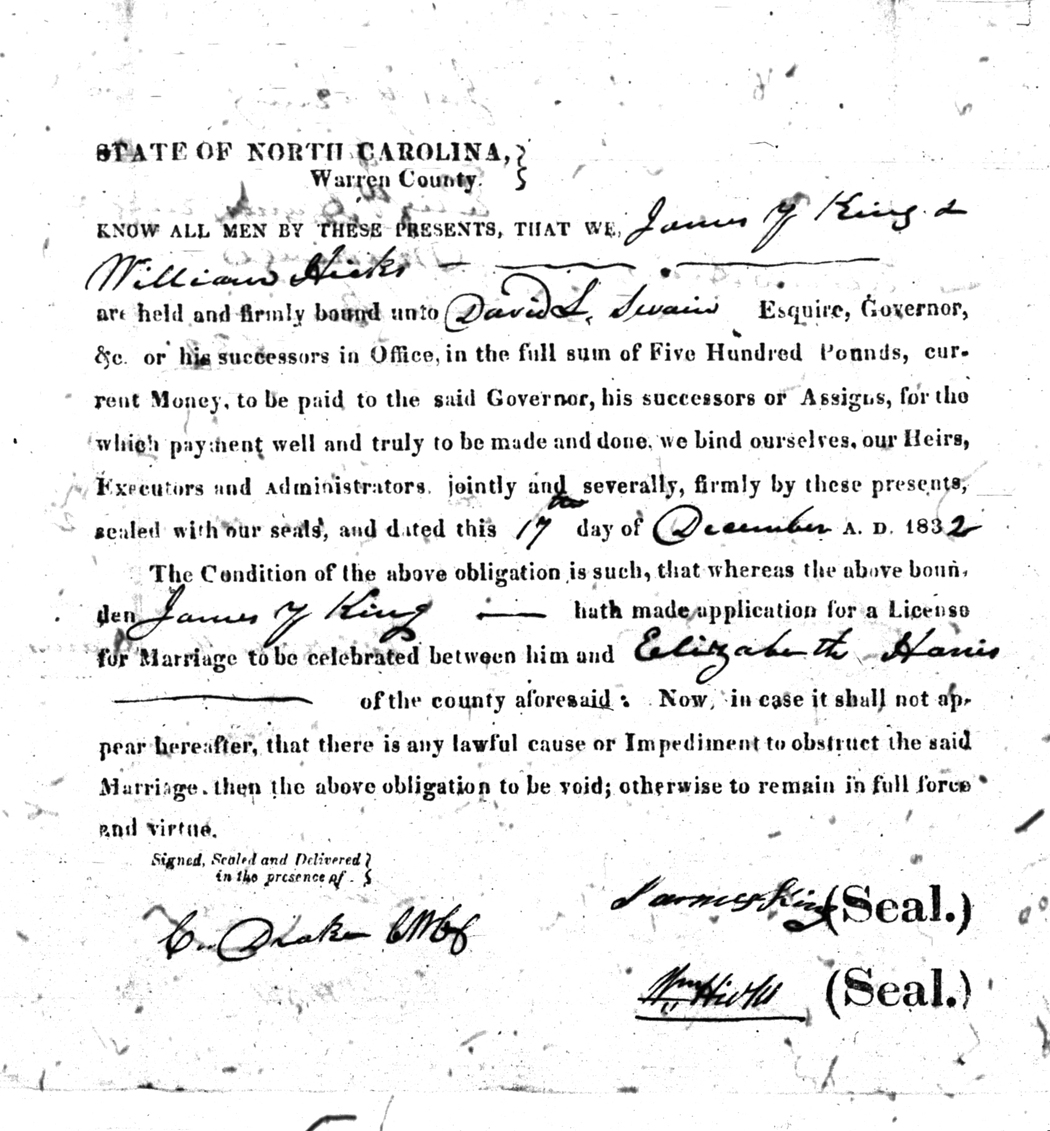 STATE OF NORTH CAROLINA,
Warren County.
KNOW ALL MEN BY THESE PRESENTS, THAT WE, James Y King &
William Hicks
are held and firmly bound unto David L. Swain Esquire, Governor,
&c. or his successors in Office, in the full sum of Five Hundred Pounds, cur-
rent Money, to be paid to the said Governor, his successors or Assigns, for the
which payment well and truly to be made and done, we bind ourselves, our Heirs,
Executors and Administrators, jointly and severally, firmly by these presents,
sealed with our seals, and dated this 17th day of December A. D. 1832
The Condition of the above obligation is such, that whereas the above boun-
den James Y King hath made application for a License
for Marriage to be celebrated between him and Elizabeth Harris
of the county aforesaid: Now, in case it shall not ap-
pear hereafter, that there is any lawful cause or Impediment to obstruct the said
Marriage, then the above obligation to be void; otherwise to remain in full force
and virtue.
Signed, Sealed and Delivered
in the presence of
C. Drake CWCf
James King (Seal.)
Wm Hicks (Seal.)